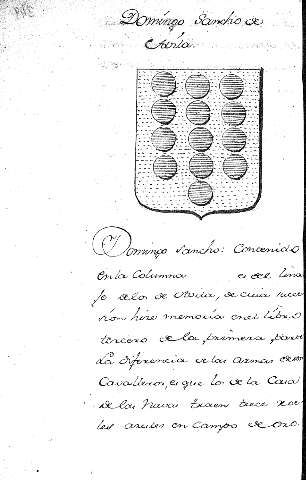 Domingo Sancho de
Avila.
Domingo Sancho: Contenido
en la Columna es del lina
je de los de Avila, de cuia succe
sion hize memoria en el libro
tercero de la primera parte
La diferencia de las Armas de
Cavalleros, es que los de la Casa
de las Navas traen trece roe
les azules en campo de oro.